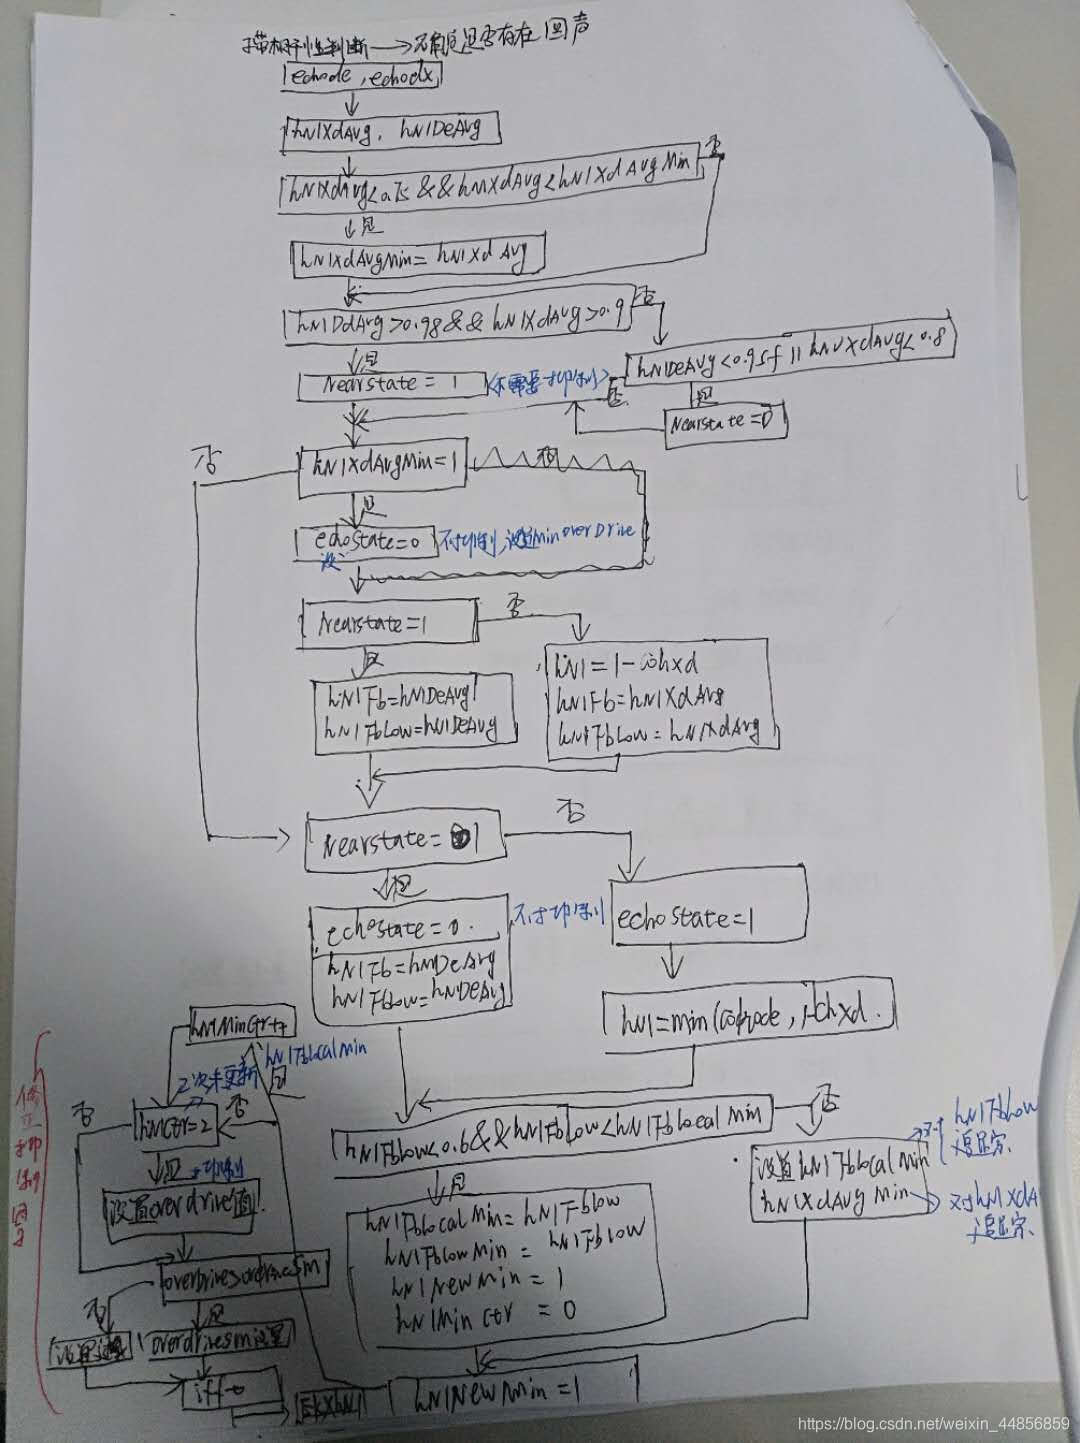 子带相干性判断→不确定是否存在回声
echode, echodx
hNlXdAvg, hNlDeAvg
否
hNlXdAvg<0.75 && hNlXdAvg<hNlXdAvgMin
是
hNlXdAvgMin = hNlXdAvg
否
hNlDdAvg>0.98 && hNlXdAvg>0.9
是
hNlDeAvg<0.95f || hNlXdAvg<0.8
Nearstate = 1
<不需要抑制>
否
是
Nearstate=0
否
hNlXdAvgMin=1
是
echostate=0
不抑制,设置minoverDrive
Nearstate=1
否
是
hNl=1-cohxd
hNlFb=hNlXdAvg
hNlFbLow=hNlXdAvg
hNlFb=hNlDeAvg
hNlFbLow=hNlDeAvg
否
Nearstate= 1
是
echostate=0.
不抑制
echostate=1
hNlFb=hNlDeAvg
hNlFbLow=hNlDeAvg
hNlMinCtr++
hNl=min(cohde, 1-chxd.
hNlFbLocalMin
2次未更新
是
否
否
否
hNlCtr=2
hNlFbLow<0.6&&hNlFbLow<hNlFbLocalMin
hNlFbLow
追踪
是
抑制
设置hNlFbLocalMin
hNlXdAvgMin
对hNlXdA
追踪
修正抑制因子
设置overdrive值
是
hNlFbLocalMin=hNlFbLow
hNlFbLowMin = hNlFbLow
hNlNewMin = 1
hNlMinCtr = 0
overdrive>overdriveSm
否
是
overdrivesm设置
hNlNewMin=1
https://blog.csdn.net/weixin_44856859